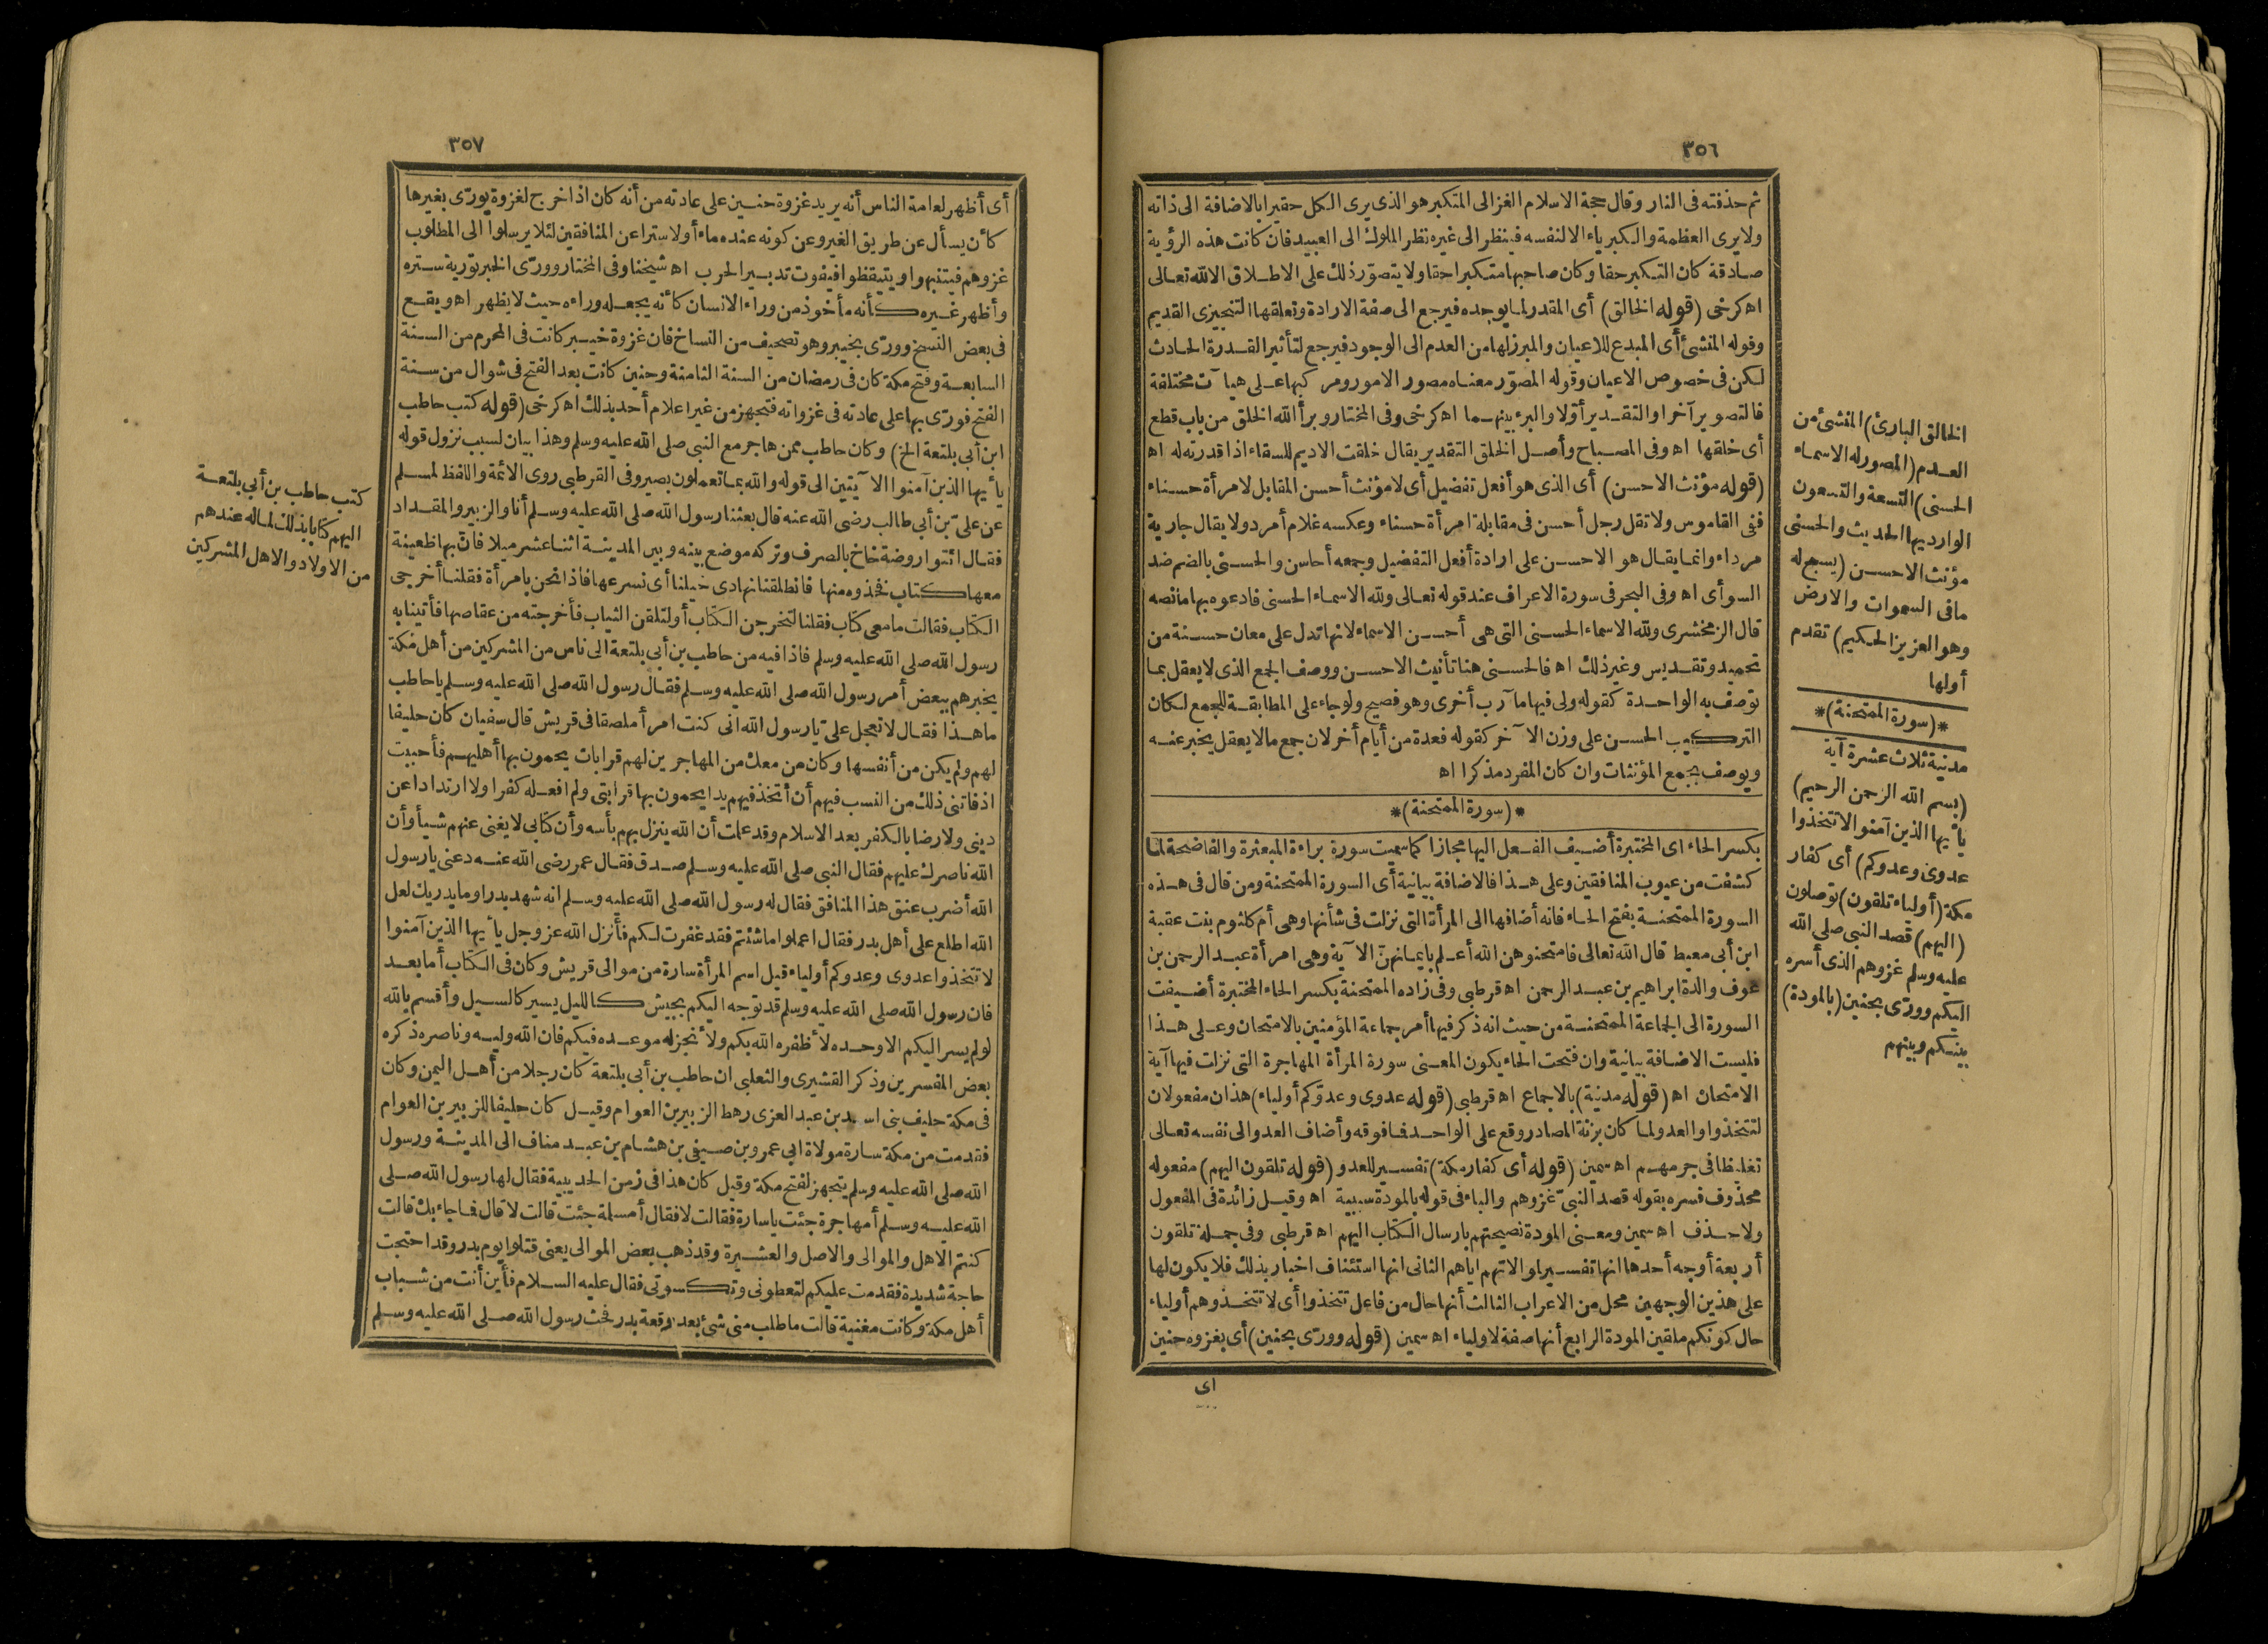 ٣٥٦
ثم حذفته فى النار وقال حجة الاسلام الغزالى المتكبر هو الذى يرى الكل حقيرا بالاضافة الى ذاته
ولا يرى العظمة والكبرياء الا لنفسه فينظر الى غيره نظر الملوك الى العبيد فان كانت هذه الرؤية
صادقة كان التكبر حقا وكان صاحبها متكبرا حقا ولا يتصوّر ذلك على الاطلاق الا لله تعالى
اه كرخى (قوله الخالق) أى المقدر لما يوجده فيرجع الى صفة الارادة وتعلقها التنجيزى القديم
وقوله المنشئ أى المبدع للاعيان والمبرز لها من العدم الى الوجود فيرجع لتأثير القدرة الحادث
لكن فى خصوص الاعيان وقوله المصوّر معناه مصور الامور ومركبها على هيا آت مختلفة
فالتصوير آخرا والتقدير أوّلا والبرء بينهما اه كرخى وفى المختار وبرأ الله الخلق من باب قطع
أى خلقها اه وفى المصباح وأصل الخلق التقدير يقال خلقت الاديم للسقاء اذا قدرته له اه
(قوله مؤنث الاحسن) أى الذى هو أفعل تفضيل أى لا مؤنث أحسن المقابل لامرأة حسناء
ففى القاموس ولا تقل رجل أحسن فى مقابلة امرأة حسناء وعكسه غلام أمرد ولا يقال جارية
مرداء وانما يقال هو الاحسن على ارادة أفعل التفضيل وجمعه أحاسن والحسنى بالضم ضد
السوأى اه وفى البحر فى سورة الاعراف عند قوله تعالى ولله الاسماء الحسنى فادعوه بها ما نصه
قال الزمخشرى ولله الاسماء الحسنى التى هى أحسن الاسماء لانها تدل على معان حسنة من
تحميد وتقديس وغير ذلك اه فالحسنى هنا تأنيث الاحسن ووصف الجمع الذى لا يعقل بما
توصف به الواحدة كقوله ولى فيها ما آرب أخرى وهو فصيح ولو جاء على المطابقة للجمع لكان
التركيب الحسن على وزن الا آخر كقوله فعدة من أيام أخر لان جمع ما لا يعقل يخبر عنه
ويوصف بجمع المؤنثات وان كان المفرد مذكرا اه
*(سورة الممتحنة)*
بكسر الحاء اى المختبرة أضيف الفعل اليها مجازا كما سميت سورة براءة المبعثرة والفاضحة لما
كشفت من عيوب المنافقين وعلى هذا فالاضافة بيانية أى السورة الممتحنة ومن قال فى هذه
السورة الممتحنة بفتح الحاء فانه أضافها الى المرأة التى نزلت فى شأنها وهى أم كلثوم بنت عقبة
ابن أبى معيط قال الله تعالى فامتحنوهن الله أعلم بايمانهنّ الا آية وهى امرأة عبد الرحمن بن
عوف والدة ابراهيم بن عبد الرحمن اه قرطبى وفى زاده الممتحنة بكسر الحاء المختبرة أضيفت
السورة الى الجماعة الممتحنة من حيث انه ذكر فيها أمر جماعة المؤمنين بالامتحان وعلى هذا
فليست الاضافة بيانية وان فتحت الحاء يكون المعنى سورة المرأة المهاجرة التى نزلت فيها آية
الامتحان اه (قوله مدنية) بالاجماع اه قرطبى (قوله عدوى وعدوّكم أولياء) هذان مفعولان
لتتخذوا والعدو لما كان بزنة المصادر وقع على الواحد فما فوقه وأضاف العدو الى نفسه تعالى
تغليظا فى جرمهم اه سمين (قوله أى كفار مكة) تفسير للعدو (قوله تلقون اليهم) مفعوله
محذوف فسره بقوله قصد النبىّ غزوهم والباء فى قوله بالمودة سببية اه وقيل زائدة فى المفعول
ولا حذف اه سمين ومعنى المودة نصيحتهم بارسال الكتاب اليهم اه قرطبى وفى جملة تلقون
أربعة أوجه أحدها انها تفسير لموالاتهم اياهم الثانى انها استئناف اخبار بذلك فلا يكون لها
على هذين الوجهين محل من الاعراب الثالث أنها حال من فاعل تتخذوا أى لا تتخذوهم أولياء
حال كونكم ملقين المودة الرابع أنها صفة لاولياء اه سمين (قوله وورّى بحنين) أى بغزوه حنين
اى
الخالق البارئ) المنشئ من
العدم (المصور له الاسماء
الحسنى) التسعة والتسعون
الوارد بها الحديث والحسنى
مؤنث الاحسن (يسبح له
ما فى السموات والارض
وهو العزيز الحكيم) تقدم
أولها
*(سورة الممتحنة)*
مدنية ثلاث عشرة آية
(بسم الله الرحمن الرحيم)
يأيها الذين آمنوا لا تتخذوا
عدوى وعدوكم) أى كفار
مكة (أولياء تلقون) توصلون
(اليهم) قصد النبى صلى الله
عليه وسلم غزوهم الذى أسره
اليكم وورّى بحنين (بالمودة)
بينكم وبينهم
٣٥٧
أى أظهر لعامة الناس أنه يريد غزوة حنين على عادته من أنه كان اذا خرج لغزوة يورّى بغيرها
كأن يسأل عن طريق الغير وعن كونه عنده ماء أو لا سترا عن المنافقين لئلا يرسلوا الى المطلوب
غزوهم فيتنبهوا ويتيقظوا فيفوت تدبير الحرب اه شيخنا وفى المختار وورّى الخبر تورية ستره
وأظهر غيره كأنه مأخوذ من وراء الانسان كأنه يجعله وراءه حيث لا يظهر اه ويقع
فى بعض النسخ وورّى بخيبر وهو تصحيف من النساخ فان غزوة خيبر كانت فى المحرم من السنة
السابعة وفتح مكة كان فى رمضان من السنة الثامنة وحنين كانت بعد الفتح فى شوال من سنة
الفتح فورّى بها على عادته فى غزواته فتجهز من غير اعلام أحد بذلك اه كرخى (قوله كتب حاطب
ابن أبى بلتعة الخ) وكان حاطب ممن هاجر مع النبى صلى الله عليه وسلم وهذا بيان لسبب نزول قوله
يأيها الذين آمنوا الا آيتين الى قوله والله بما تعملون بصير وفى القرطبى روى الائمة واللفظ لمسلم
عن علىّ بن أبى طالب رضى الله عنه قال بعثنا رسول الله صلى الله عليه وسلم أنا والزبير والمقداد
فقال ائتوا روضة خاخ بالصرف وتركه موضع بينه وبين المدينة اثنا عشر ميلا فان بها ظعينة
معها كتاب فخذوه منها فانطلقنا نهادى خيلنا أى نسرعها فاذا نحن بامرأة فقلنا أخرجى
الكتاب فقالت ما معى كتاب فقلنا لتخرجن الكتاب أو لتلقن الثياب فأخرجته من عقاصها فأتينا به
رسول الله صلى الله عليه وسلم فاذا فيه من حاطب بن أبى بلتعة الى ناس من المشركين من أهل مكة
يخبرهم ببعض أمر رسول الله صلى الله عليه وسلم فقال رسول الله صلى الله عليه وسلم يا حاطب
ما هذا فقال لا تعجل علىّ يا رسول الله انى كنت امرأ ملصقا فى قريش قال سفيان كان حليفا
لهم ولم يكن من أنفسها وكان من معك من المهاجرين لهم قرابات يحمون بها أهليهم فأحببت
اذ فاتنى ذلك من النسب فيهم أن أتخذ فيهم يدا يحمون بها قرابتى ولم افعله كفرا ولا ارتدادا عن
دينى ولا رضا بالكفر بعد الاسلام وقد علمت أن الله ينزل بهم بأسه وأن كتابى لا يغنى عنهم شيأ وأن
الله ناصرك عليهم فقال النبى صلى الله عليه وسلم صدق فقال عمر رضى الله عنه دعنى يا رسول
الله أضرب عنق هذا المنافق فقال له رسول الله صلى الله عليه وسلم انه شهد بدرا وما يدريك لعل
الله اطلع على أهل بدر فقال اعملوا ما شئتم فقد غفرت لكم فأنزل الله عز وجل يأيها الذين آمنوا
لا تتخذوا عدوى وعدوكم أولياء قيل اسم المرأة سارة من موالى قريش وكان فى الكتاب أما بعد
فان رسول الله صلى الله عليه وسلم قد توجه اليكم بجيش كالليل يسير كالسيل وأقسم بالله
لو لم يسر اليكم الا وحده لأظفره الله بكم ولأنجز له موعده فيكم فان الله وليه وناصره ذكره
بعض المفسرين وذكر القشيرى والثعلبى ان حاطب بن أبى بلتعة كان رجلا من أهل اليمن وكان
فى مكة حليف بنى اسد بن عبد العزى رهط الزبير بن العوام وقيل كان حليفا للزبير بن العوام
فقدمت من مكة سارة مولاة ابى عمرو بن صيفى بن هشام بن عبد مناف الى المدينة ورسول
الله صلى الله عليه وسلم يتجهز لفتح مكة وقيل كان هذا فى زمن الحديبية فقال لها رسول الله صلى
الله عليه وسلم أمهاجرة جئت يا سارة فقالت لا فقال أمسلمة جئت قالت لا قال فما جاء بك قالت
كنتم الاهل والموالى والاصل والعشيرة وقد ذهب بعض الموالى يعنى قتلوا يوم بدر وقد احتجت
حاجة شديدة فقدمت عليكم لتعطونى وتكسونى فقال عليه السلام فأين أنت من شباب
أهل مكة وكانت مغنية قالت ما طلب منى شئ بعد وقعة بدر فحث رسول الله صلى الله عليه وسلم
كتب حاطب بن أبى بلتعة
اليهم كتابا بذلك لماله عندهم
من الاولاد والاهل المشركين